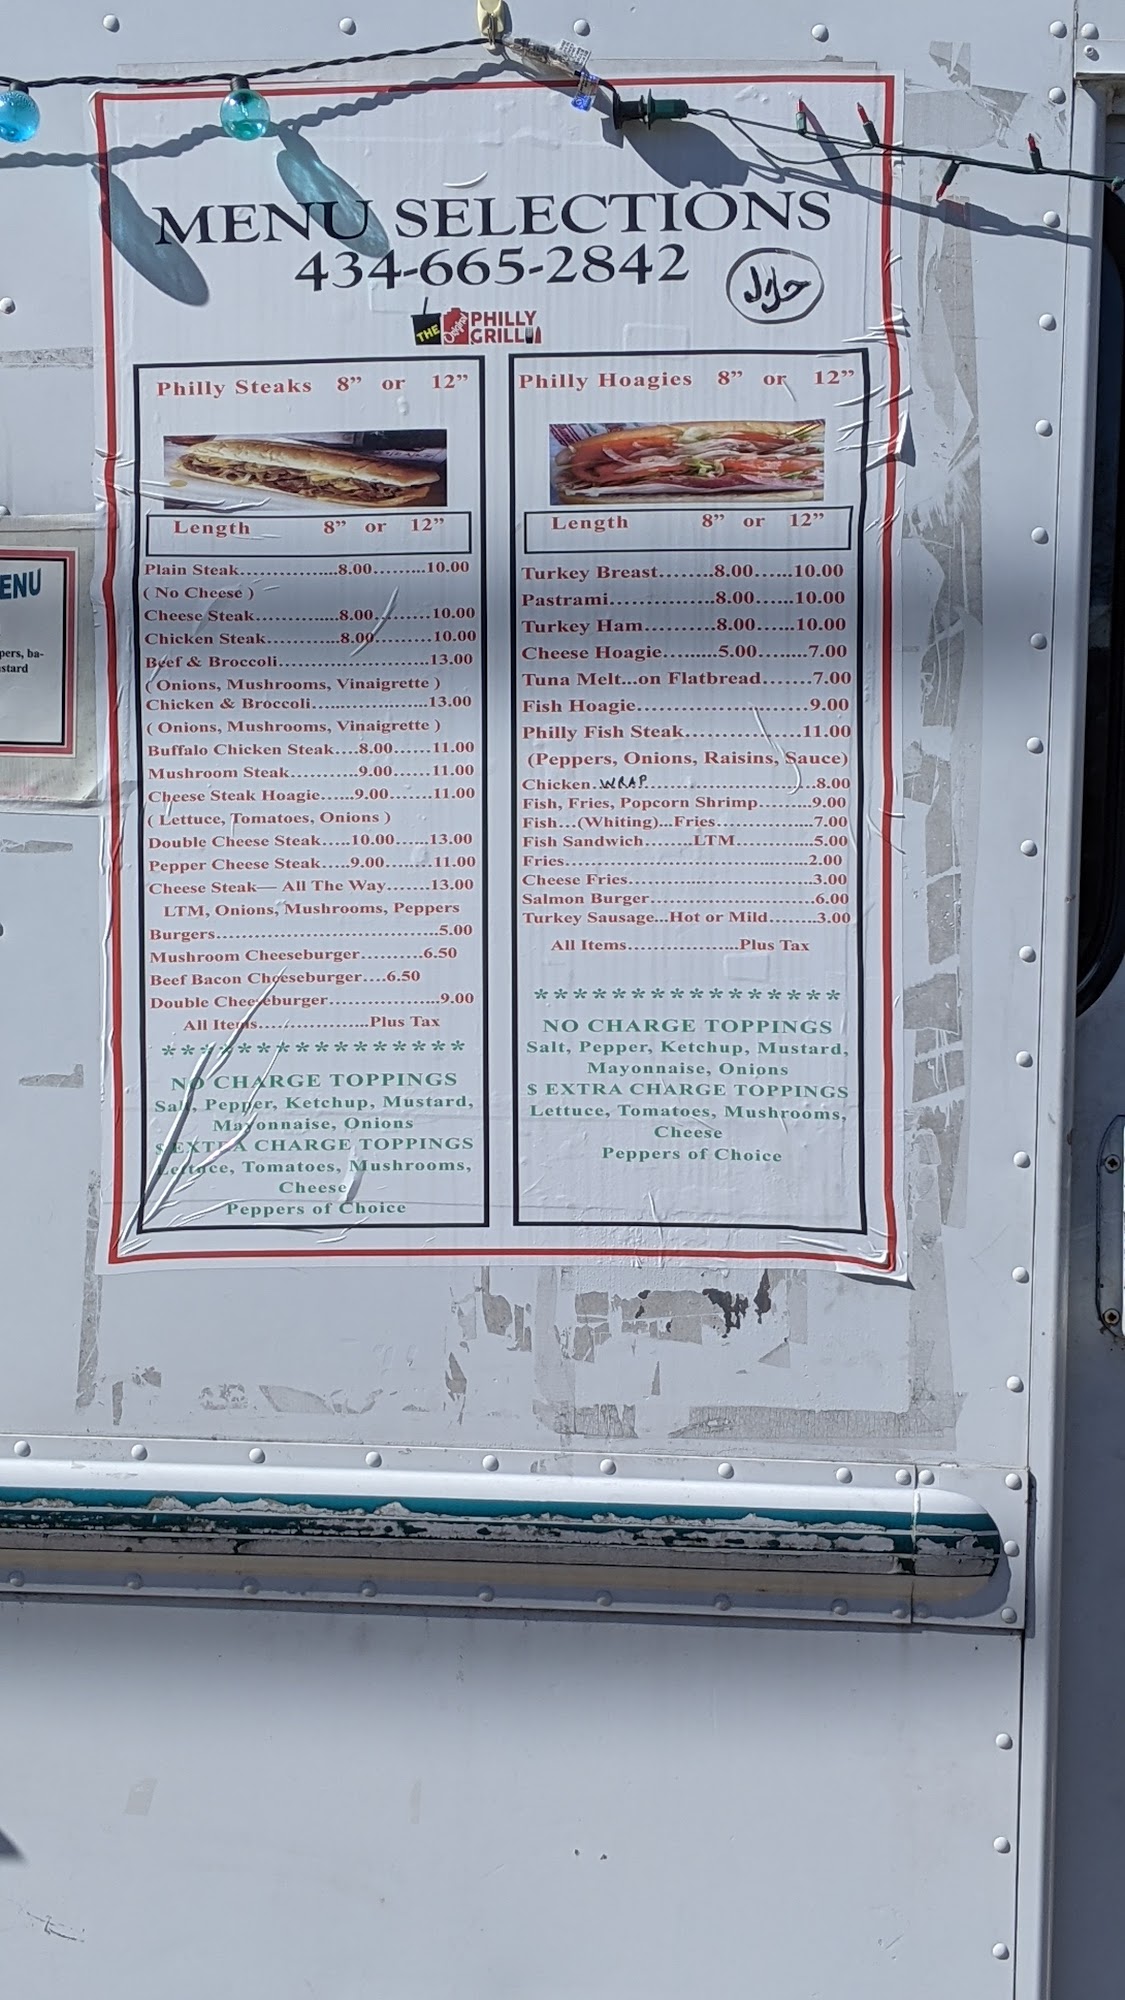 MENU SELECTIONS
434-665-2842
حلال
THE Original PHILLY
GRILL
Philly Steaks 8” or 12”
Length 8” or 12”
Plain Steak...............8.00.........10.00
( No Cheese )
Cheese Steak.............8.00.........10.00
Chicken Steak...........8.00.........10.00
Beef & Broccoli.......................13.00
( Onions, Mushrooms, Vinaigrette )
Chicken & Broccoli..................13.00
( Onions, Mushrooms, Vinaigrette )
Buffalo Chicken Steak....8.00......11.00
Mushroom Steak..........9.00......11.00
Cheese Steak Hoagie......9.00.......11.00
( Lettuce, Tomatoes, Onions )
Double Cheese Steak.....10.00.....13.00
Pepper Cheese Steak.....9.00......11.00
Cheese Steak— All The Way.......13.00
LTM, Onions, Mushrooms, Peppers
Burgers..................................5.00
Mushroom Cheeseburger..........6.50
Beef Bacon Cheeseburger....6.50
Double Cheeseburger.................9.00
All Items..................Plus Tax
****************
NO CHARGE TOPPINGS
Salt, Pepper, Ketchup, Mustard,
Mayonnaise, Onions
$ EXTRA CHARGE TOPPINGS
Lettuce, Tomatoes, Mushrooms,
Cheese
Peppers of Choice
Philly Hoagies 8” or 12”
Length 8” or 12”
Turkey Breast........8.00......10.00
Pastrami...............8.00......10.00
Turkey Ham.........8.00......10.00
Cheese Hoagie.........5.00........7.00
Tuna Melt...on Flatbread.......7.00
Fish Hoagie........................9.00
Philly Fish Steak.................11.00
(Peppers, Onions, Raisins, Sauce)
Chicken. WRAP..........................8.00
Fish, Fries, Popcorn Shrimp.........9.00
Fish...(Whiting)...Fries................7.00
Fish Sandwich........LTM.............5.00
Fries........................................2.00
Cheese Fries..............................3.00
Salmon Burger...........................6.00
Turkey Sausage...Hot or Mild.......3.00
All Items..................Plus Tax
****************
NO CHARGE TOPPINGS
Salt, Pepper, Ketchup, Mustard,
Mayonnaise, Onions
$ EXTRA CHARGE TOPPINGS
Lettuce, Tomatoes, Mushrooms,
Cheese
Peppers of Choice
ENU
pers, ba-
stard